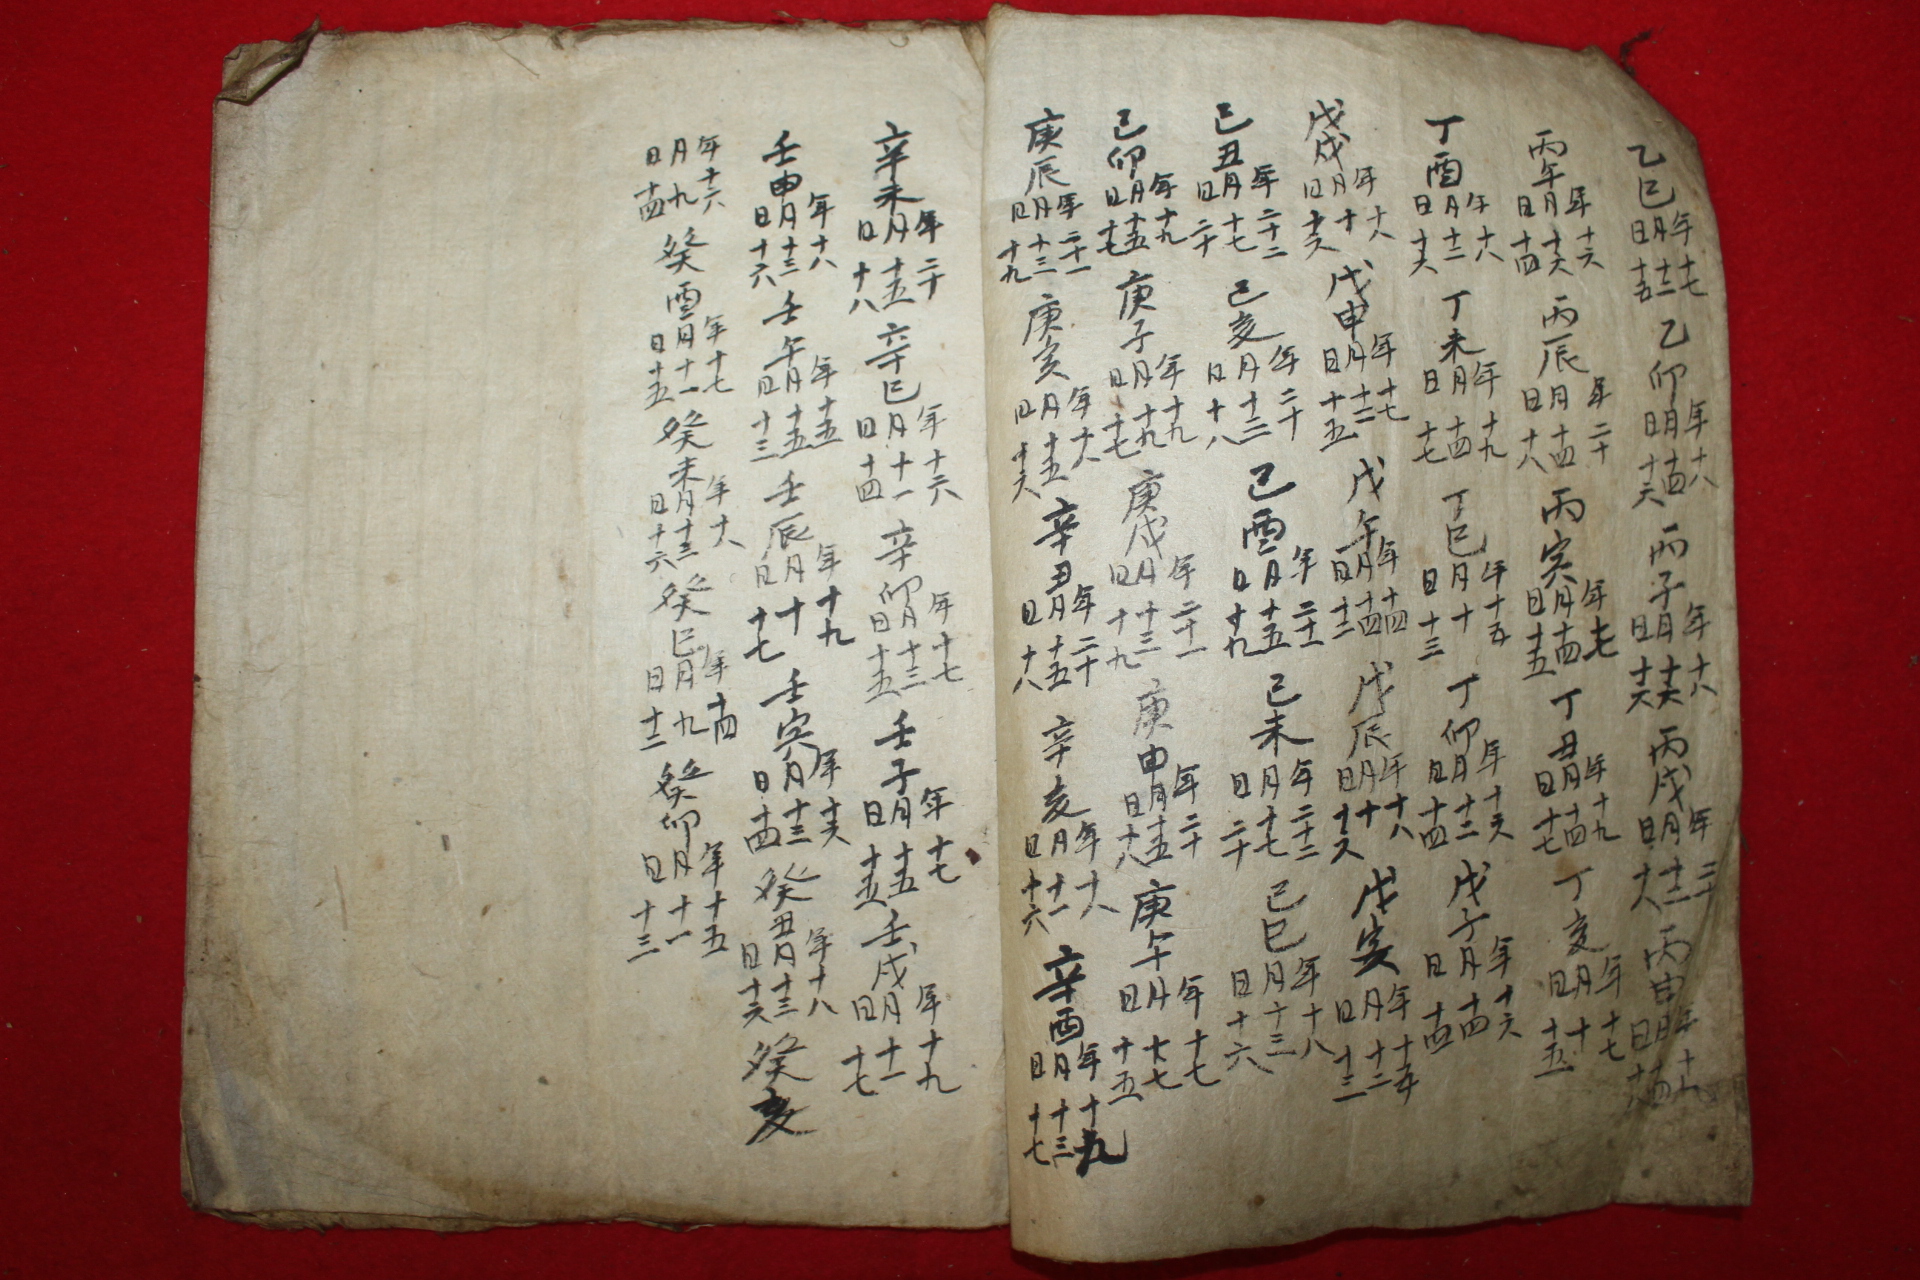 乙巳年十七月十二日十五乙卯年十八月十四日十六丙子年十八月十六日十六丙戌年二十月十二日十八丙申年月十四日
丙午年十六月十六日十四丙辰年二十月十四日十八丙寅年十七月十四日十五丁丑年十九月十四日十七丁亥年十七月十日十五
丁酉年十八月十二日十六丁未年十九月十四日十七丁巳年十五月十日十三丁卯年十六月十二日十四戊子年十六月十四日十四
戊戌年十八月十日十六戊申年十七月十二日十五戊午年十四月十四日十二戊辰年十八月十日十六戊寅年十五月十二日十三
己丑年二十二月十七日二十己亥年二十月十三日十八己酉年二十一月十五日十九己未年二十二月十七日二十己巳年十八月十三日十六
己卯年十九月十五日十七庚子年十九月十九日十七庚戌年二十一月十三日十九庚申年二十月十五日十八庚午年十七月十七日十五
庚辰年二十一月十三日十九庚寅年十八月十五日十六辛丑年二十月十五日十八辛亥年十八月十一日十六辛酉年十九月十三日十七
辛未年二十月十五日十八辛巳年十六月十一日十四辛卯年十七月十三日十五壬子年十七月十五日十五壬戌年十九月十一日十七
壬申年十八月十三日十六壬午年十五月十五日十三壬辰年十九月十日十七壬寅年十六月十三日十四癸丑年十八月十三日十六癸亥
年十六月九日十四癸酉年十七月十一日十五癸未年十八月十三日十六癸巳年十四月九日十二癸卯年十五月十一日十三